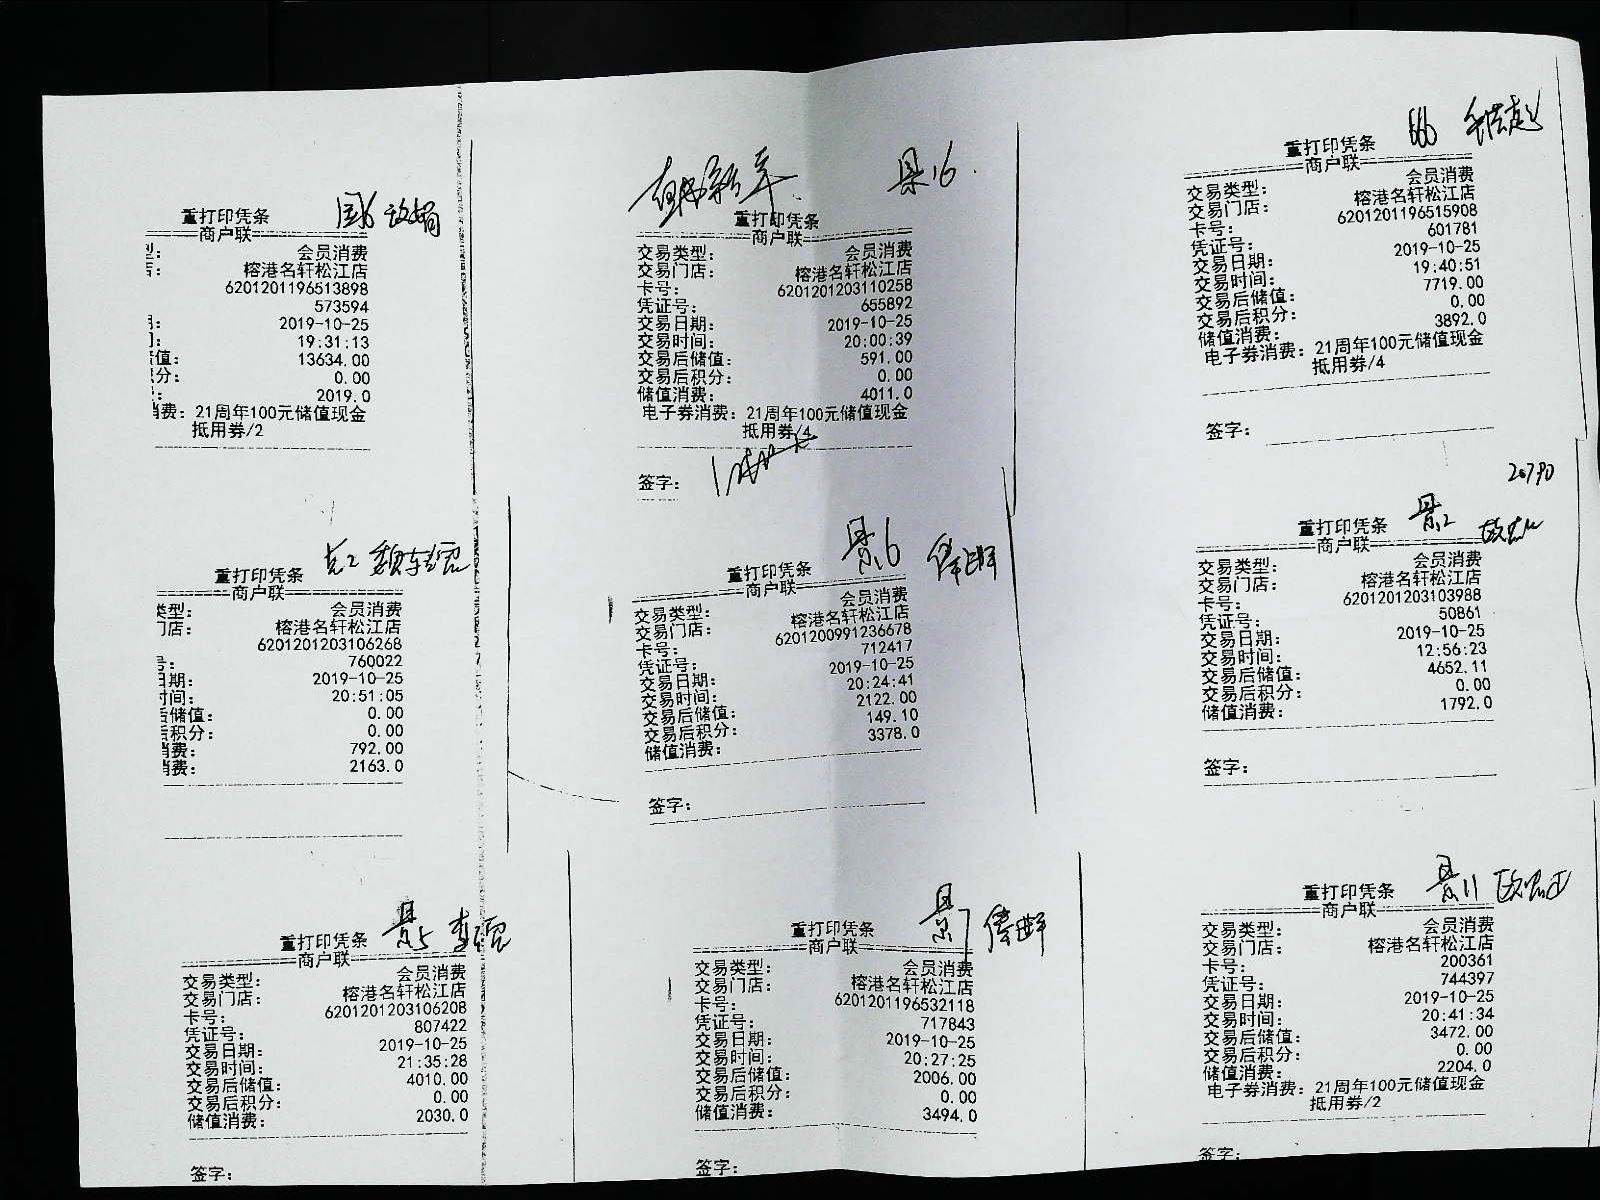 重打印凭条
商户联
型： 会员消费
店： 榕港名轩松江店
6201201196513898
573594
期： 2019-10-25
间： 19:31:13
储值： 13634.00
积分： 0.00
： 2019.0
消费：21周年100元储值现金
抵用券/2
景16.
重打印凭条
商户联
交易类型： 会员消费
交易门店： 榕港名轩松江店
卡号： 6201201203110258
凭证号： 655892
交易日期： 2019-10-25
交易时间： 20:00:39
交易后储值： 591.00
交易后积分： 0.00
储值消费： 4011.0
电子券消费：21周年100元储值现金
抵用券/4
签字：
666
重打印凭条
商户联
交易类型： 会员消费
交易门店： 榕港名轩松江店
卡号： 6201201196515908
凭证号： 601781
交易日期： 2019-10-25
交易时间： 19:40:51
交易后储值： 7719.00
交易后积分： 0.00
储值消费： 3892.0
电子券消费：21周年100元储值现金
抵用券/4
签字：
重打印凭条
商户联
类型： 会员消费
门店： 榕港名轩松江店
6201201203106268
号： 760022
日期： 2019-10-25
时间： 20:51:05
后储值： 0.00
后积分： 0.00
消费： 792.00
消费： 2163.0
景6
重打印凭条
商户联
交易类型： 会员消费
交易门店： 榕港名轩松江店
卡号： 6201200991236678
凭证号： 712417
交易日期： 2019-10-25
交易时间： 20:24:41
交易后储值： 2122.00
交易后积分： 149.10
储值消费： 3378.0
签字：
20790
重打印凭条 景2
商户联
交易类型： 会员消费
交易门店： 榕港名轩松江店
卡号： 6201201203103988
凭证号： 50861
交易日期： 2019-10-25
交易时间： 12:56:23
交易后储值： 4652.11
交易后积分： 0.00
储值消费： 1792.0
签字：
重打印凭条 景5
商户联
交易类型： 会员消费
交易门店： 榕港名轩松江店
卡号： 6201201203106208
凭证号： 807422
交易日期： 2019-10-25
交易时间： 21:35:28
交易后储值： 4010.00
交易后积分： 0.00
储值消费： 2030.0
签字：
重打印凭条 景7
商户联
交易类型： 会员消费
交易门店： 榕港名轩松江店
卡号： 6201201196532118
凭证号： 717843
交易日期： 2019-10-25
交易时间： 20:27:25
交易后储值： 2006.00
交易后积分： 0.00
储值消费： 3494.0
签字：
重打印凭条 景11
商户联
交易类型： 会员消费
交易门店： 榕港名轩松江店
卡号： 200361
凭证号： 744397
交易日期： 2019-10-25
交易时间： 20:41:34
交易后储值： 3472.00
交易后积分： 0.00
储值消费： 2204.0
电子券消费：21周年100元储值现金
抵用券/2
签字：